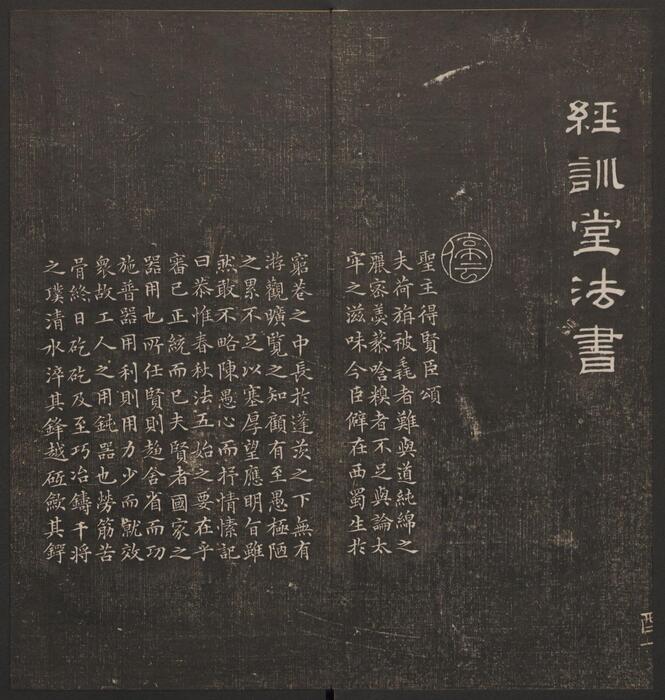 經訓堂法書
停雲
聖主得賢臣頌
夫荷旃被毳者難與道純綿之
麗密羹藜唅糗者不足與論太
牢之滋味今臣僻在西蜀生扵
窮巷之中長扵蓬茨之下無有
游觀曠覽之知顧有至愚極陋
之累不足以塞厚望應明旨雖
然敢不略陳愚心而抒情愫記
曰恭惟春秋法五始之要在乎
審己正統而已夫賢者國家之
器用也所任賢則趨舍省而功
施普器用利則用力少而就效
衆故工人之用鈍器也勞筋苦
骨終日矻矻及至巧冶鑄干將
之璞清水淬其鋒越砥斂其鍔
酉一